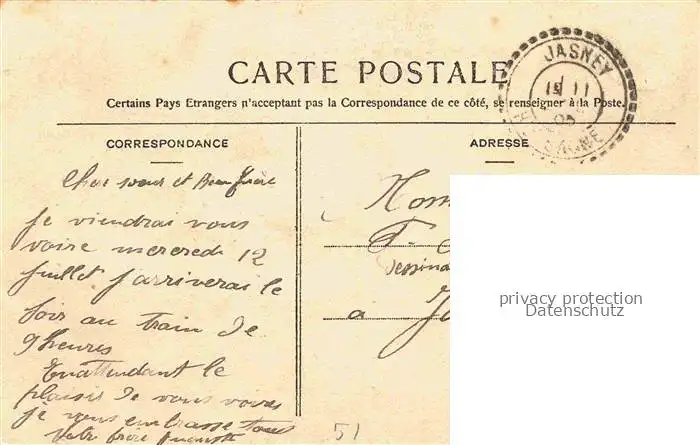 CARTE POSTALE
Certains Pays Etrangers n'acceptant pas la Correspondance de ce côté, se renseigner à la Poste.
JASNEY
SAONE
CORRESPONDANCE
Cher soeur et Beau frère
je viendrai vous
voire mercredi 12
juillet j'arriverai le
soir au train de
9 heures
En attendant le
plaisir de vous voires
je vous embrasse tous
Votre frère Auguste
ADRESSE
Mons
Dessina
a
51
privacy protection
Datenschutz